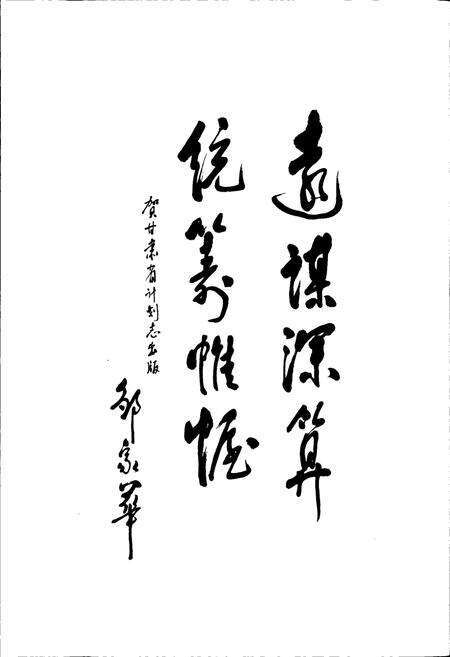 遠謀深算
统筹帷幄
贺甘肃省计划志出版
邹家华